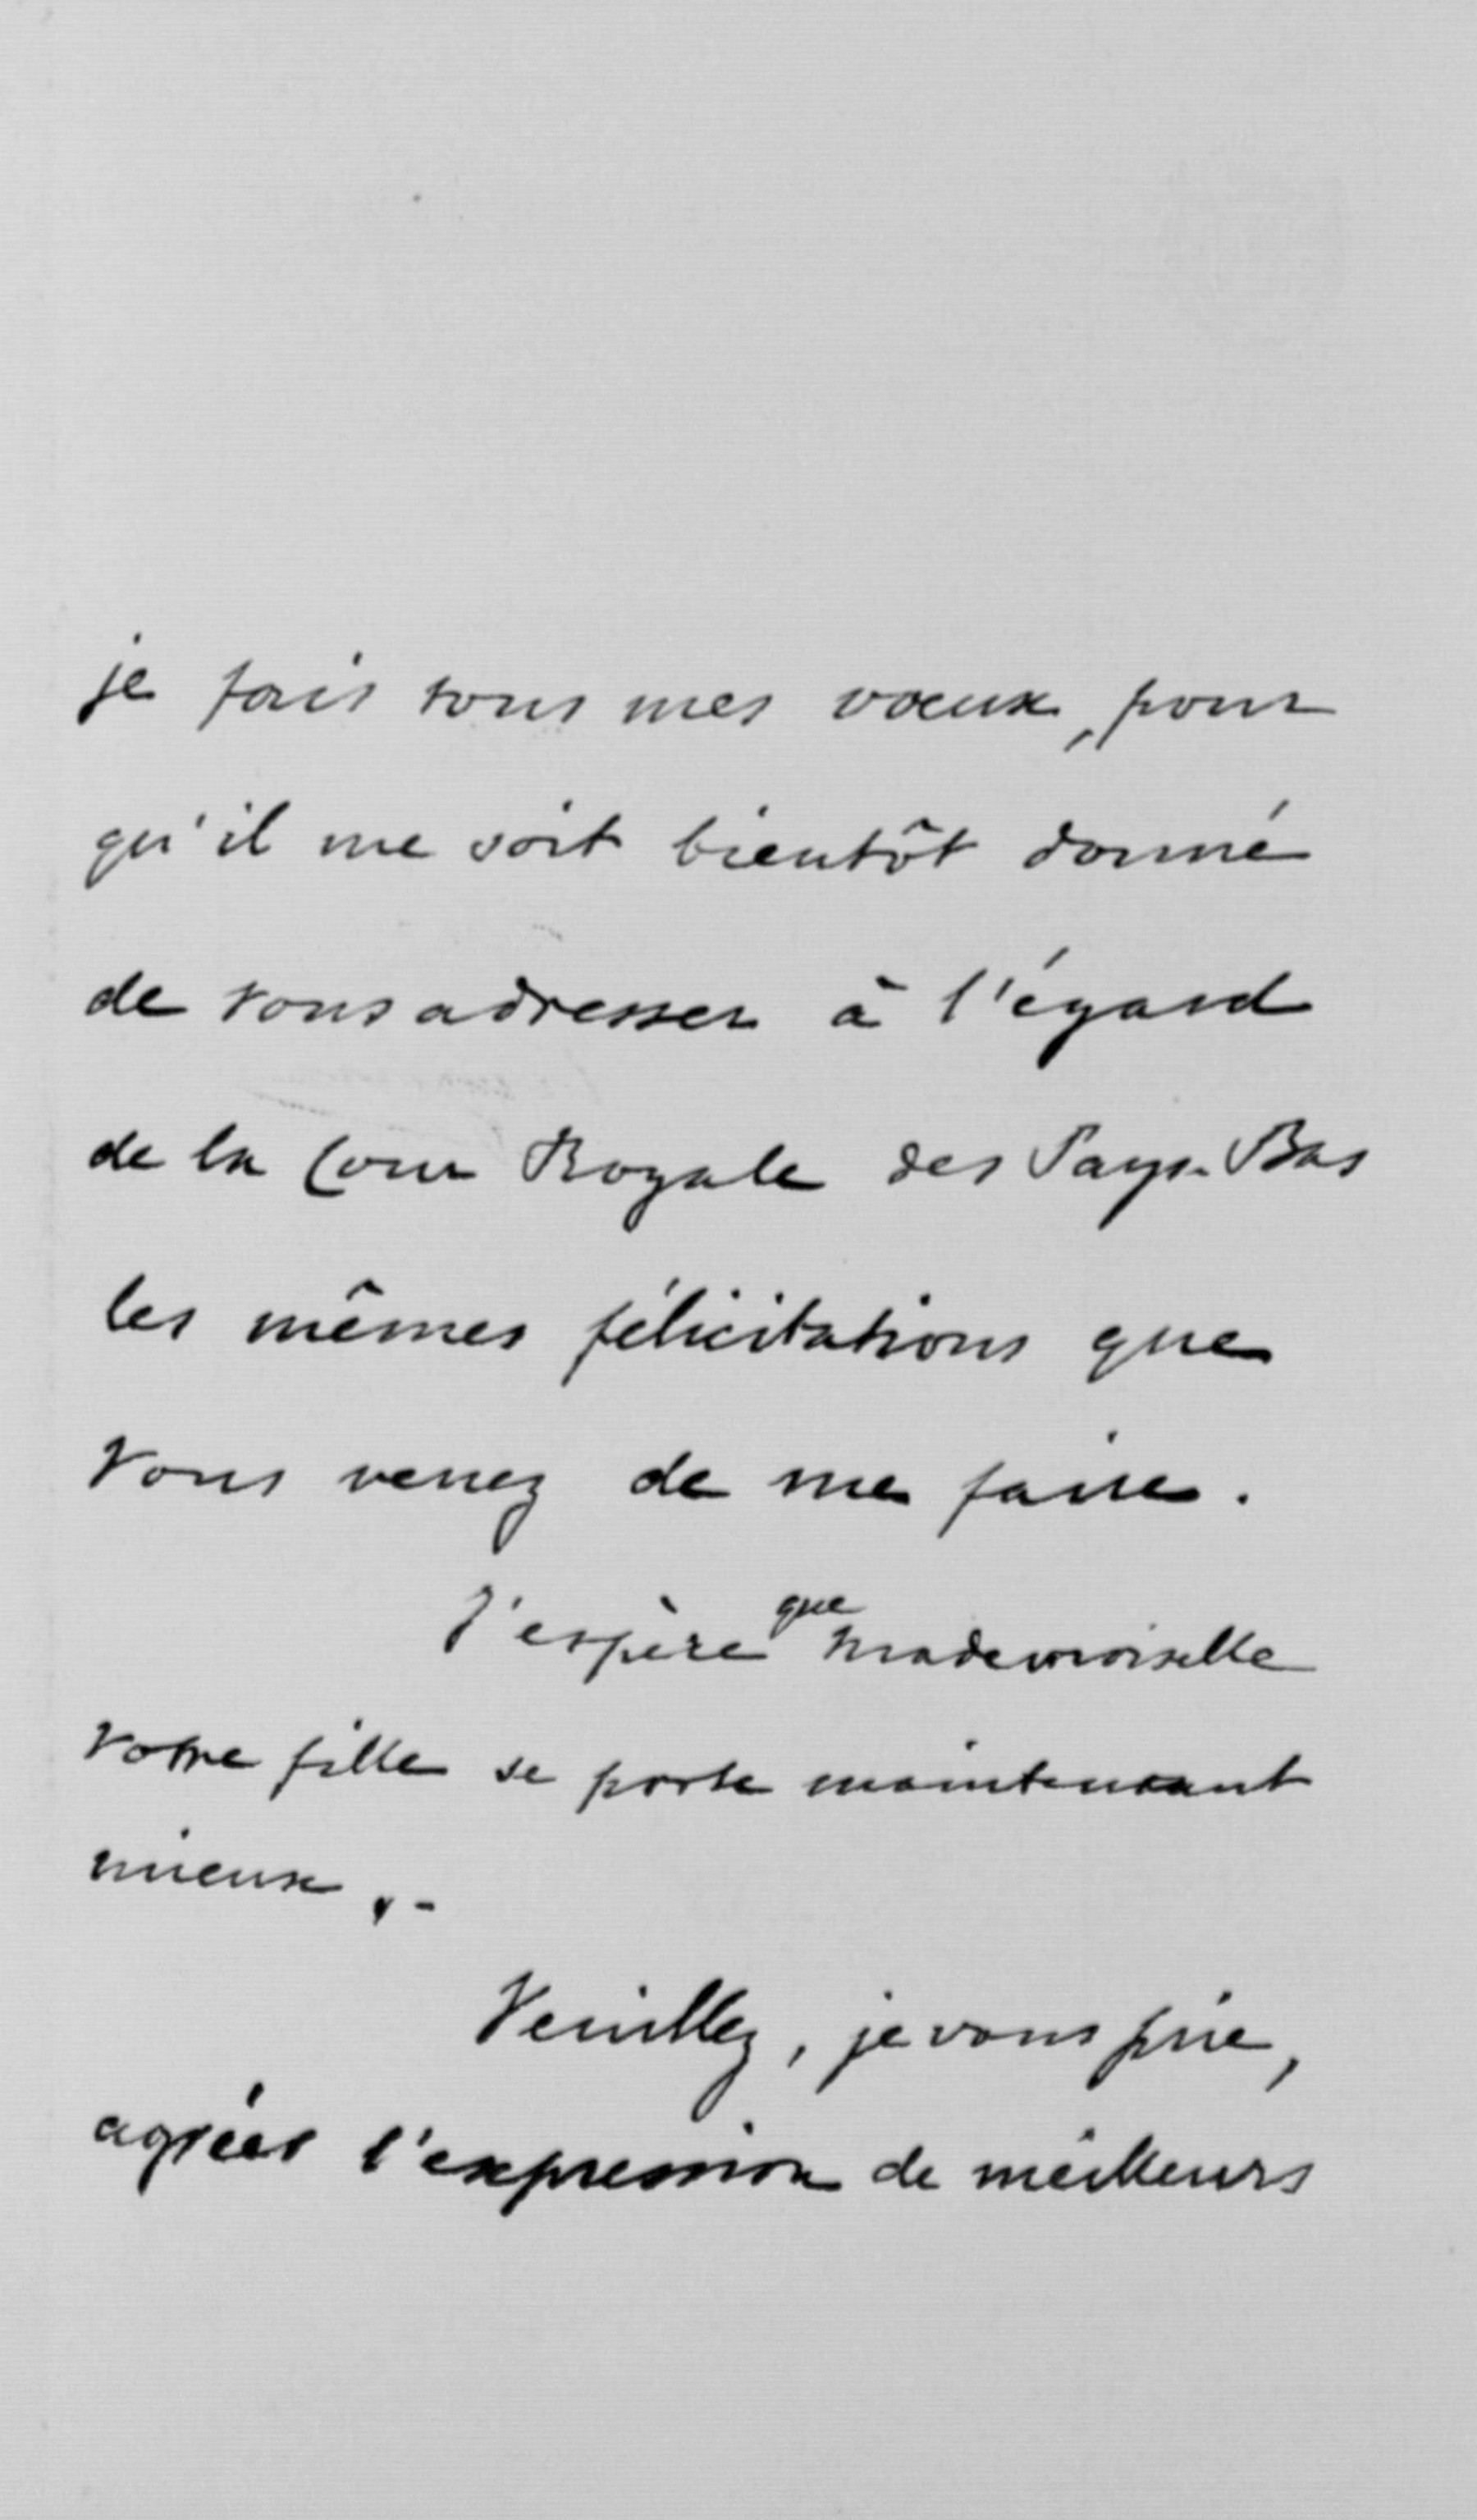 je fais tous mes voeux, pour
qu'il me soit bientôt donné
de vous adresser à l'égard
de la Cour Royale des Pays-Bas
les mêmes félicitations que
Vous venez de me faire.
J'espère que Mademoiselle
Votre fille se porte maintenant
mieux.-
Veuillez, je vous prie,
agréer l'expression de meilleurs